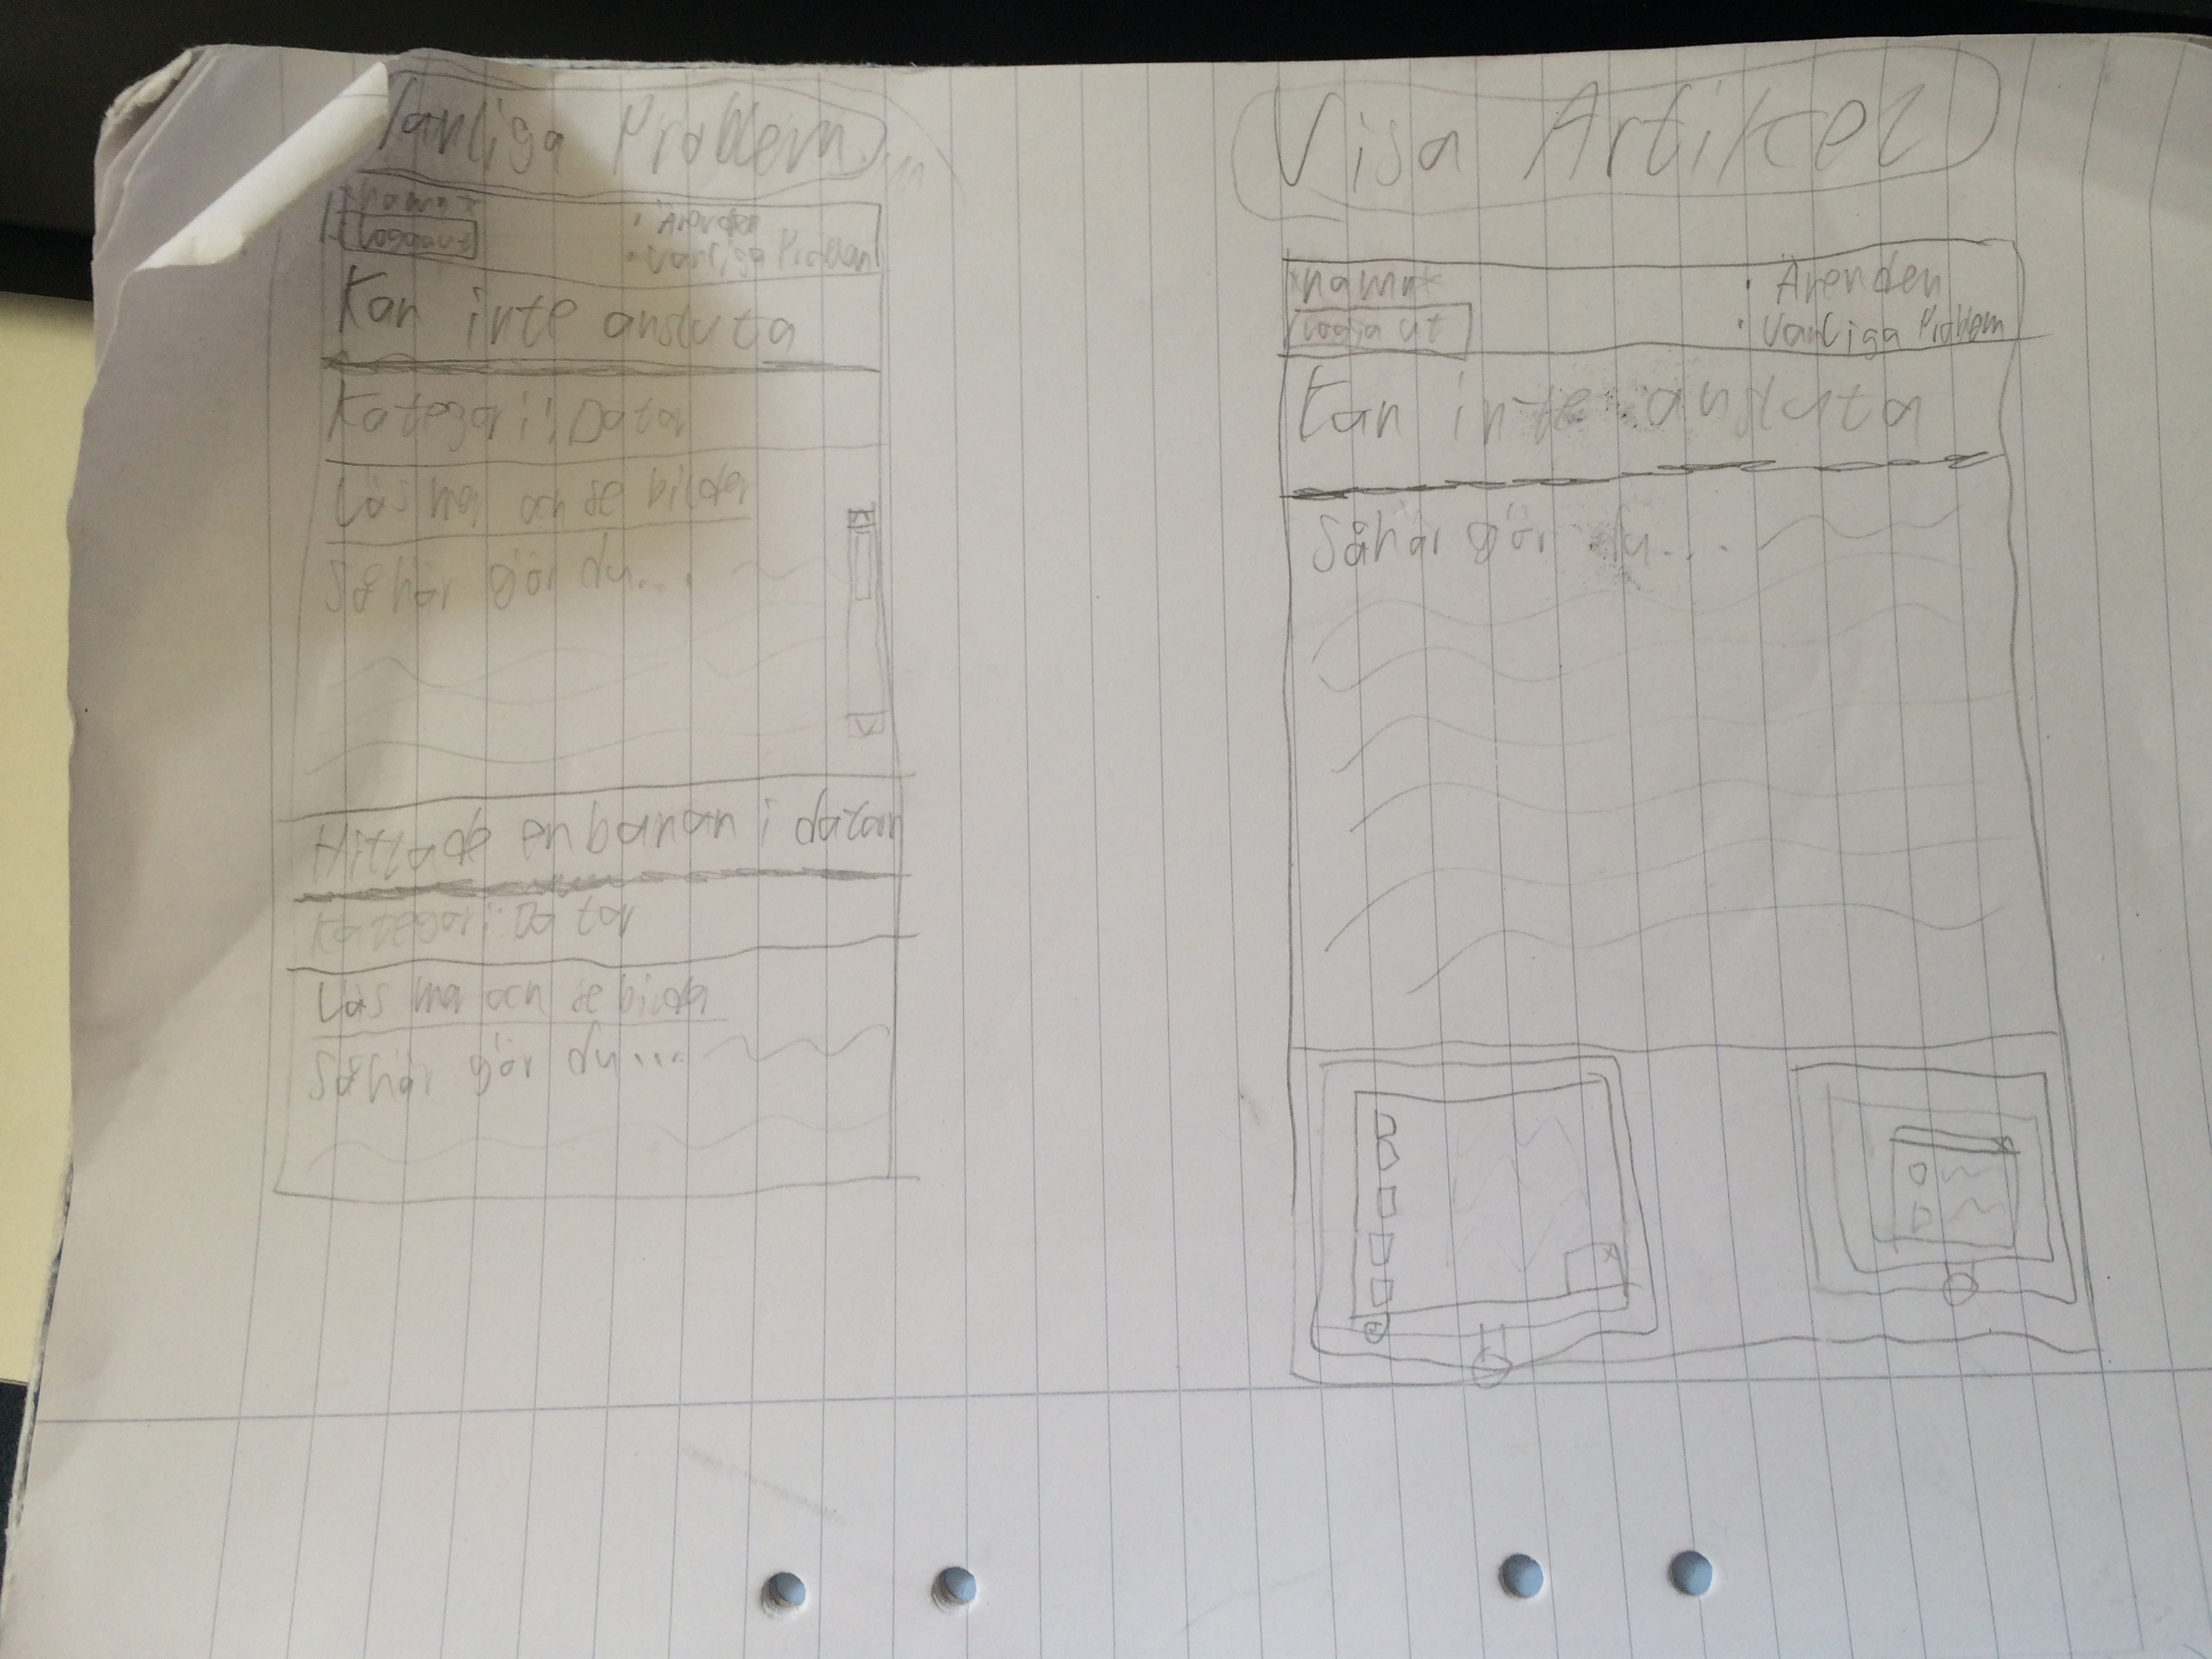 Vanliga Problem
*namn*
Logga ut
• Ärenden
• Vanliga Problem
Kan inte ansluta
Kategori: Dator
Läs mer och se bilder
Såhär gör du...
Hittade en banan i datorn
Kategori: Dator
Läs mer och se bilder
Såhär gör du...
Visa Artikel
*namn*
Logga ut
• Ärenden
• Vanliga Problem
Kan inte ansluta
Såhär gör du...